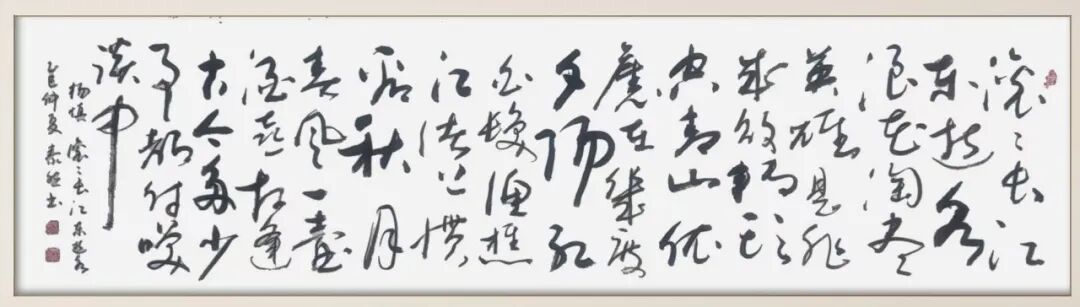 滚滚长江
东逝水
浪花淘尽
英雄是非
成败转头
空青山依
舊在幾度
夕阳红
白髮渔樵
江渚上惯
看秋月
春风一壶
酒喜相逢
古今多少
事都付笑
谈中
杨慎 滚滚长江东逝水
乙巳仲夏 书